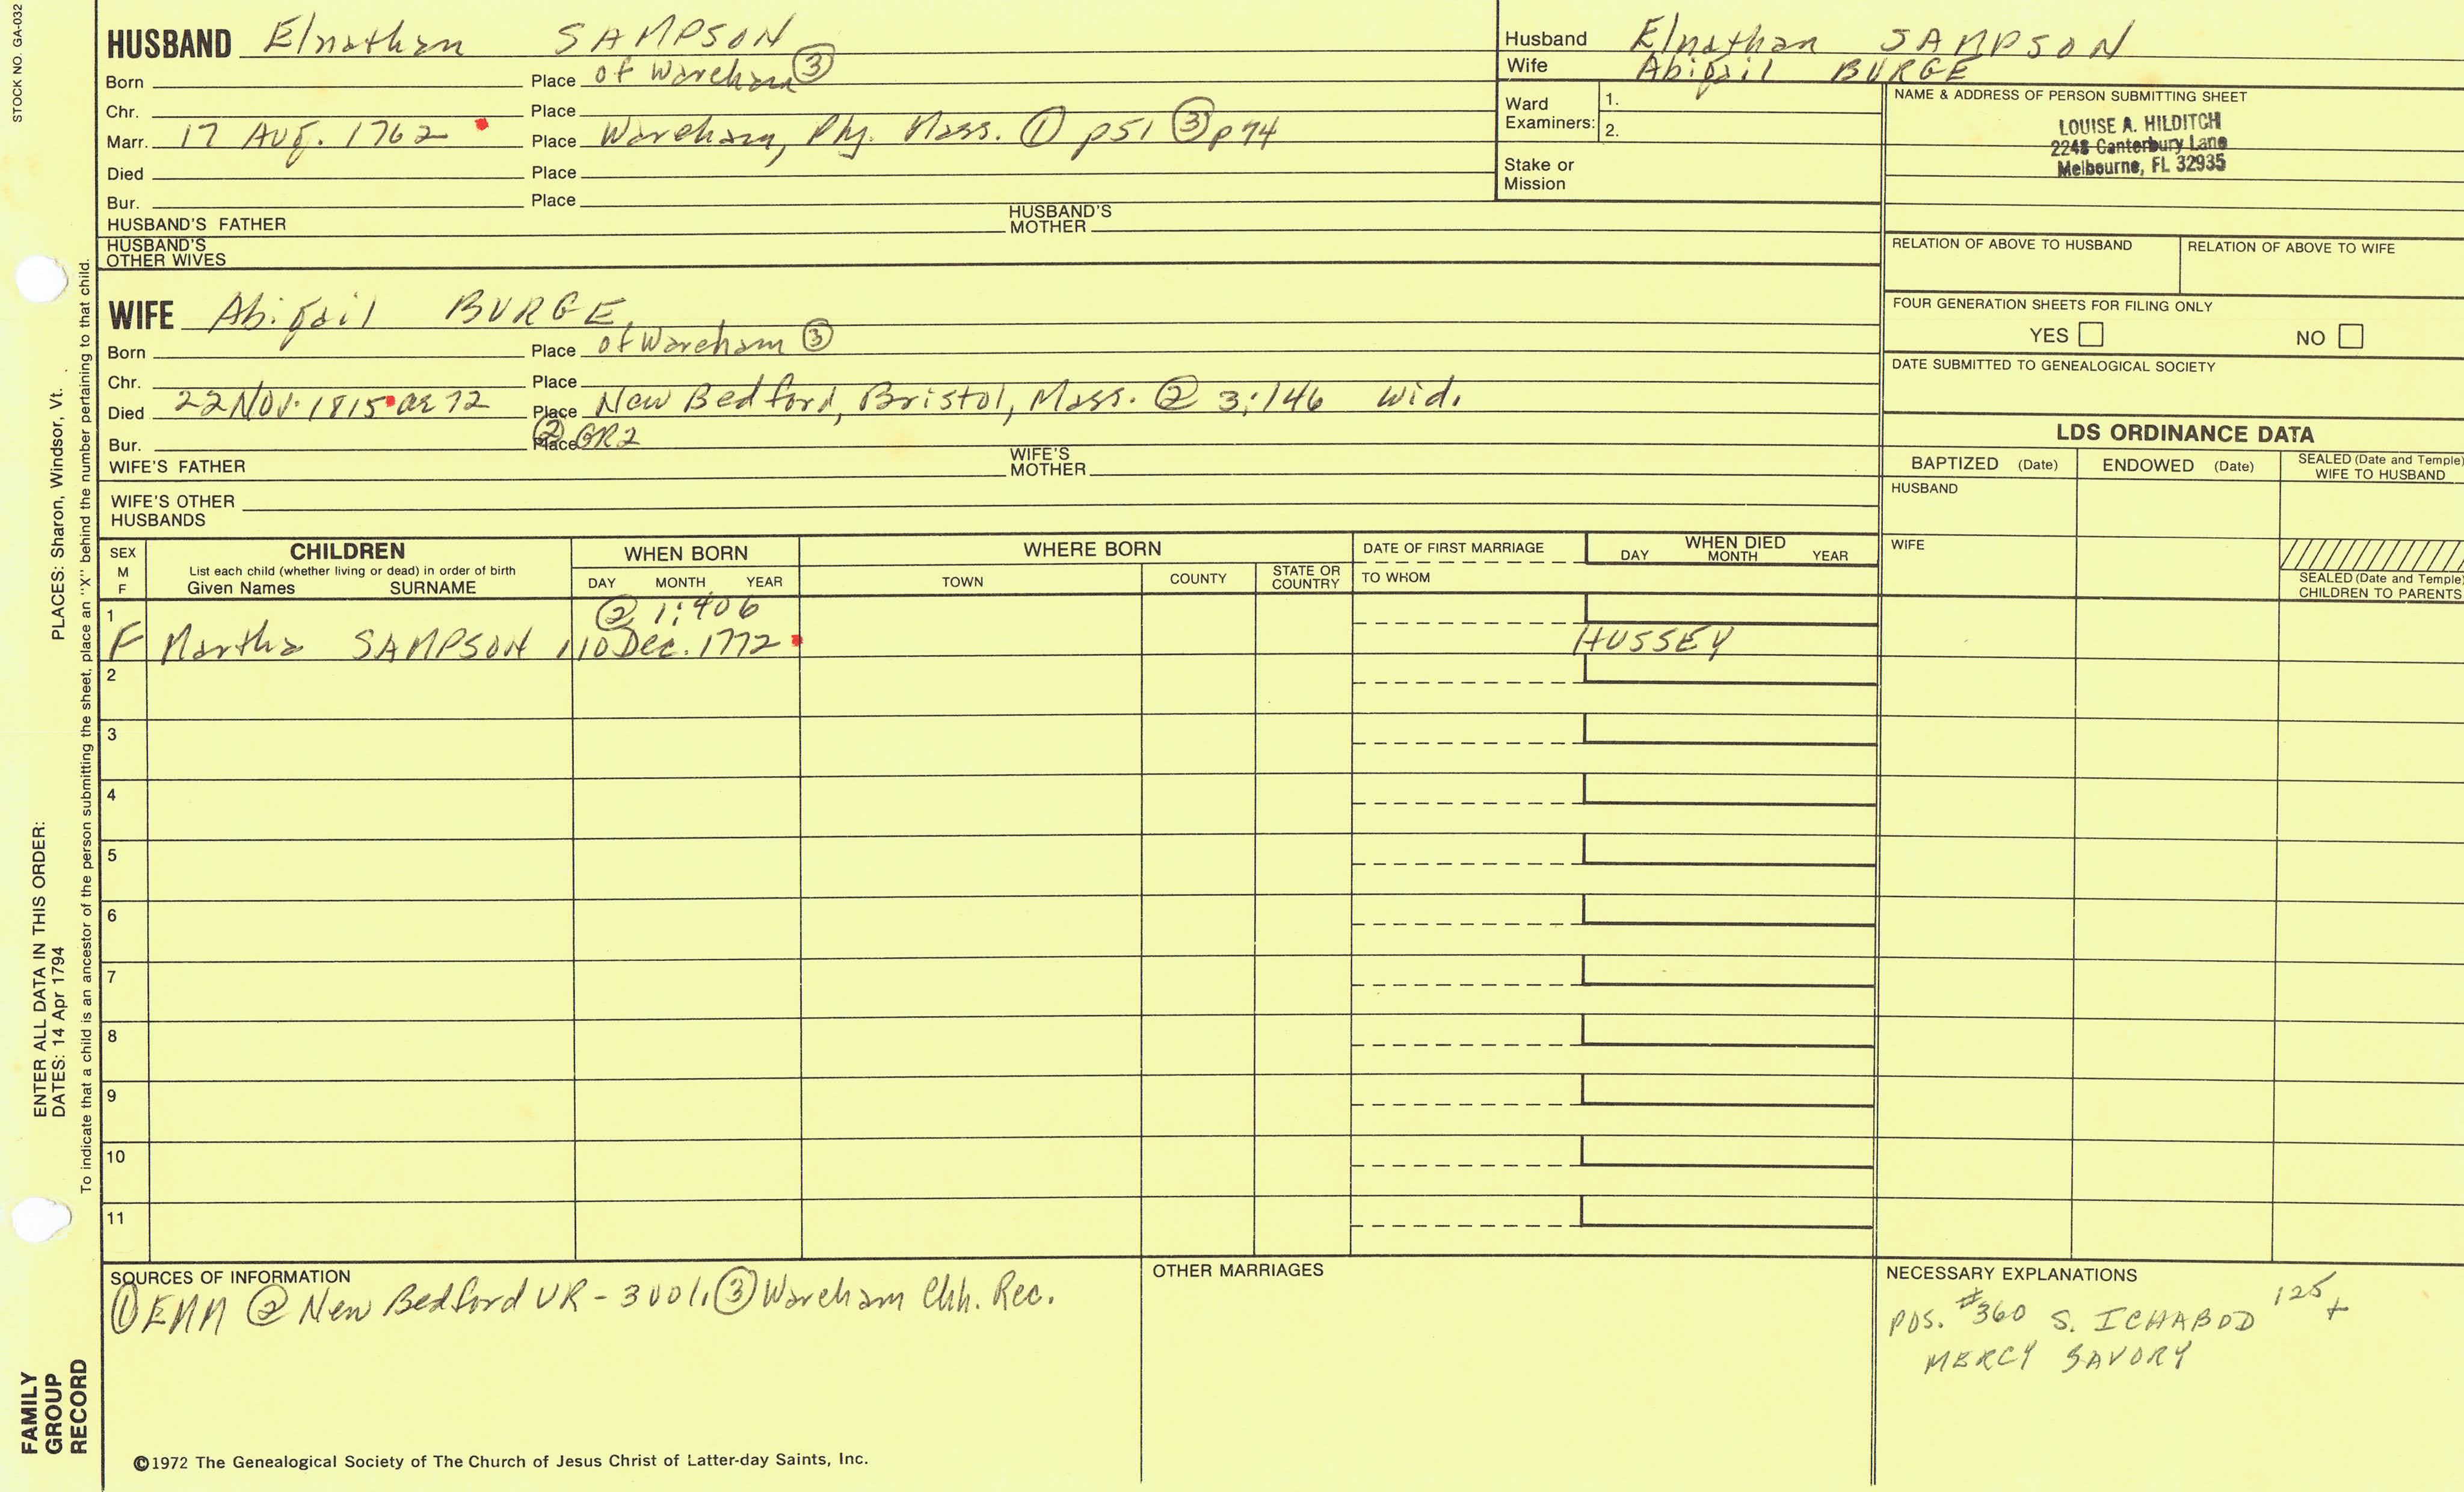 STOCK NO. GA-032
HUSBAND Elnathan SAMPSON
Born Place of Wareham ③
Chr. Place
Marr. 17 Aug. 1762 Place Wareham, Ply. Mass. ① p51 ③ p74
Died Place
Bur. Place
HUSBAND'S FATHER HUSBAND'S MOTHER
HUSBAND'S OTHER WIVES
Husband Elnathan SAMPSON
Wife Abigail BURGE
Ward Examiners: 1.
2.
Stake or Mission
NAME & ADDRESS OF PERSON SUBMITTING SHEET
LOUISE A. HILDITCH
2248 Canterbury Lane
Melbourne, FL 32935
RELATION OF ABOVE TO HUSBAND RELATION OF ABOVE TO WIFE
FOUR GENERATION SHEETS FOR FILING ONLY
YES NO
DATE SUBMITTED TO GENEALOGICAL SOCIETY
WIFE Abigail BURGE
Born Place of Wareham ③
Chr. Place
Died 22 Nov. 1815 ae 72 Place New Bedford, Bristol, Mass. ② 3:146 Wid.
Bur. Place ② GR2
WIFE'S FATHER WIFE'S MOTHER
WIFE'S OTHER HUSBANDS
LDS ORDINANCE DATA
BAPTIZED (Date) ENDOWED (Date) SEALED (Date and Temple) WIFE TO HUSBAND
HUSBAND
WIFE
SEALED (Date and Temple) CHILDREN TO PARENTS
SEX M F
CHILDREN
List each child (whether living or dead) in order of birth
Given Names SURNAME
WHEN BORN
DAY MONTH YEAR
WHERE BORN
TOWN COUNTY STATE OR COUNTRY
DATE OF FIRST MARRIAGE
TO WHOM
WHEN DIED
DAY MONTH YEAR
1 ② 1:406
F Martha SAMPSON 10 Dec. 1772 HUSSEY
2
3
4
5
6
7
8
9
10
11
SOURCES OF INFORMATION
① EMM ② New Bedford VR - 3 vol. ③ Wareham Chh. Rec.
OTHER MARRIAGES
NECESSARY EXPLANATIONS
POS. #360 S. ICHABOD 125 +
MERCY SAVORY
©1972 The Genealogical Society of The Church of Jesus Christ of Latter-day Saints, Inc.
FAMILY GROUP RECORD
ENTER ALL DATA IN THIS ORDER:
DATES: 14 Apr 1794 PLACES: Sharon, Windsor, Vt.
To indicate that a child is an ancestor of the person submitting the sheet, place an "X" behind the number pertaining to that child.